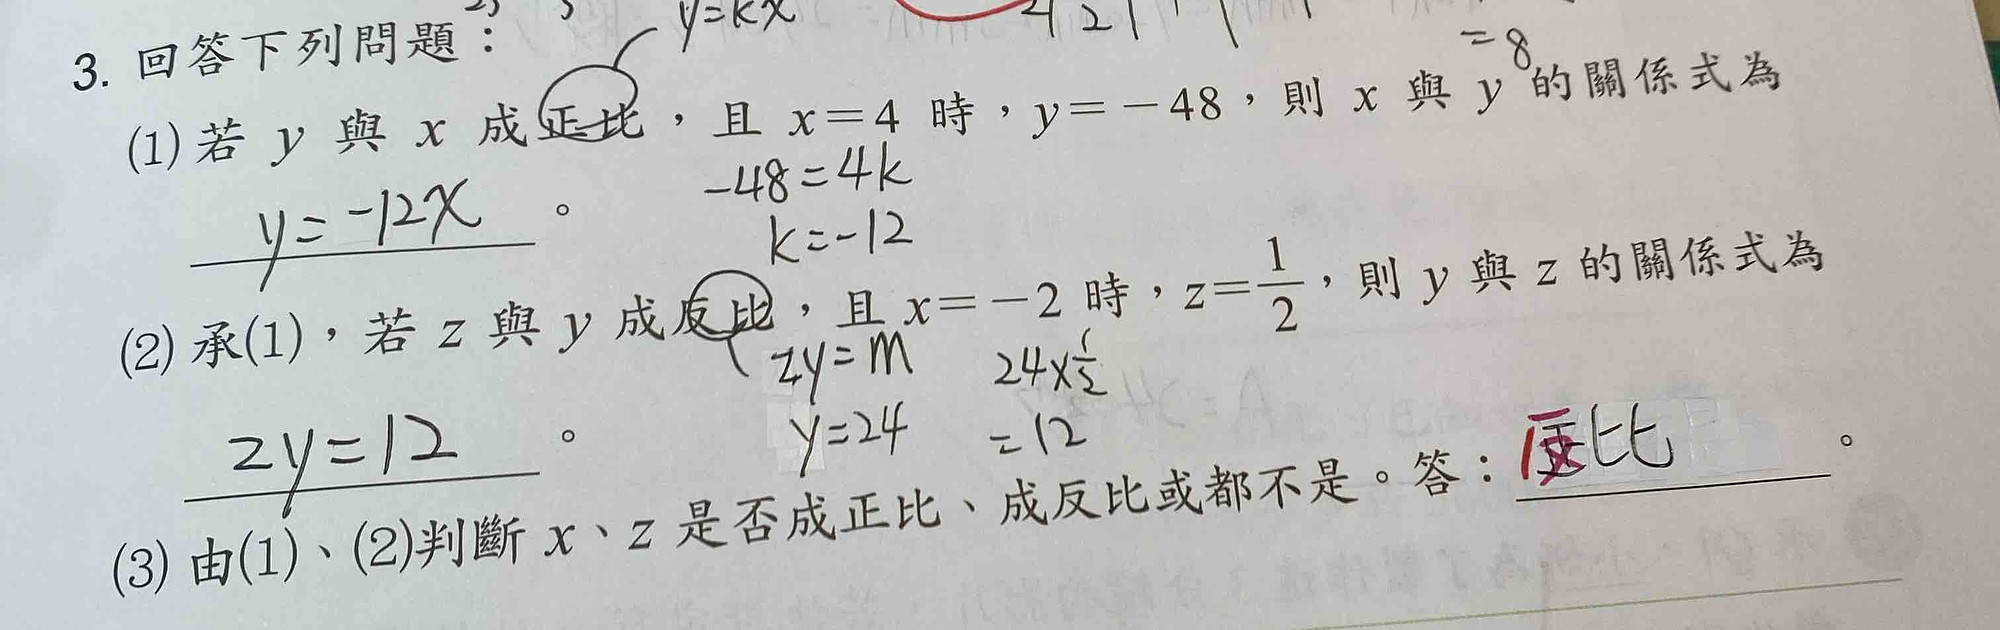 y=kx
3. 回答下列問題：
=8
(1) 若 y 與 x 成正比，且 x=4 時，y=-48，則 x 與 y 的關係式為
-48=4k
y=-12x 。
k=-12
(2) 承(1)，若 z 與 y 成反比，且 x=-2 時，z=1/2，則 y 與 z 的關係式為
zy=m 24×1/2
zy=12 。 y=24 =12
(3) 由(1)、(2)判斷 x、z 是否成正比、成反比或都不是。答：反比 。